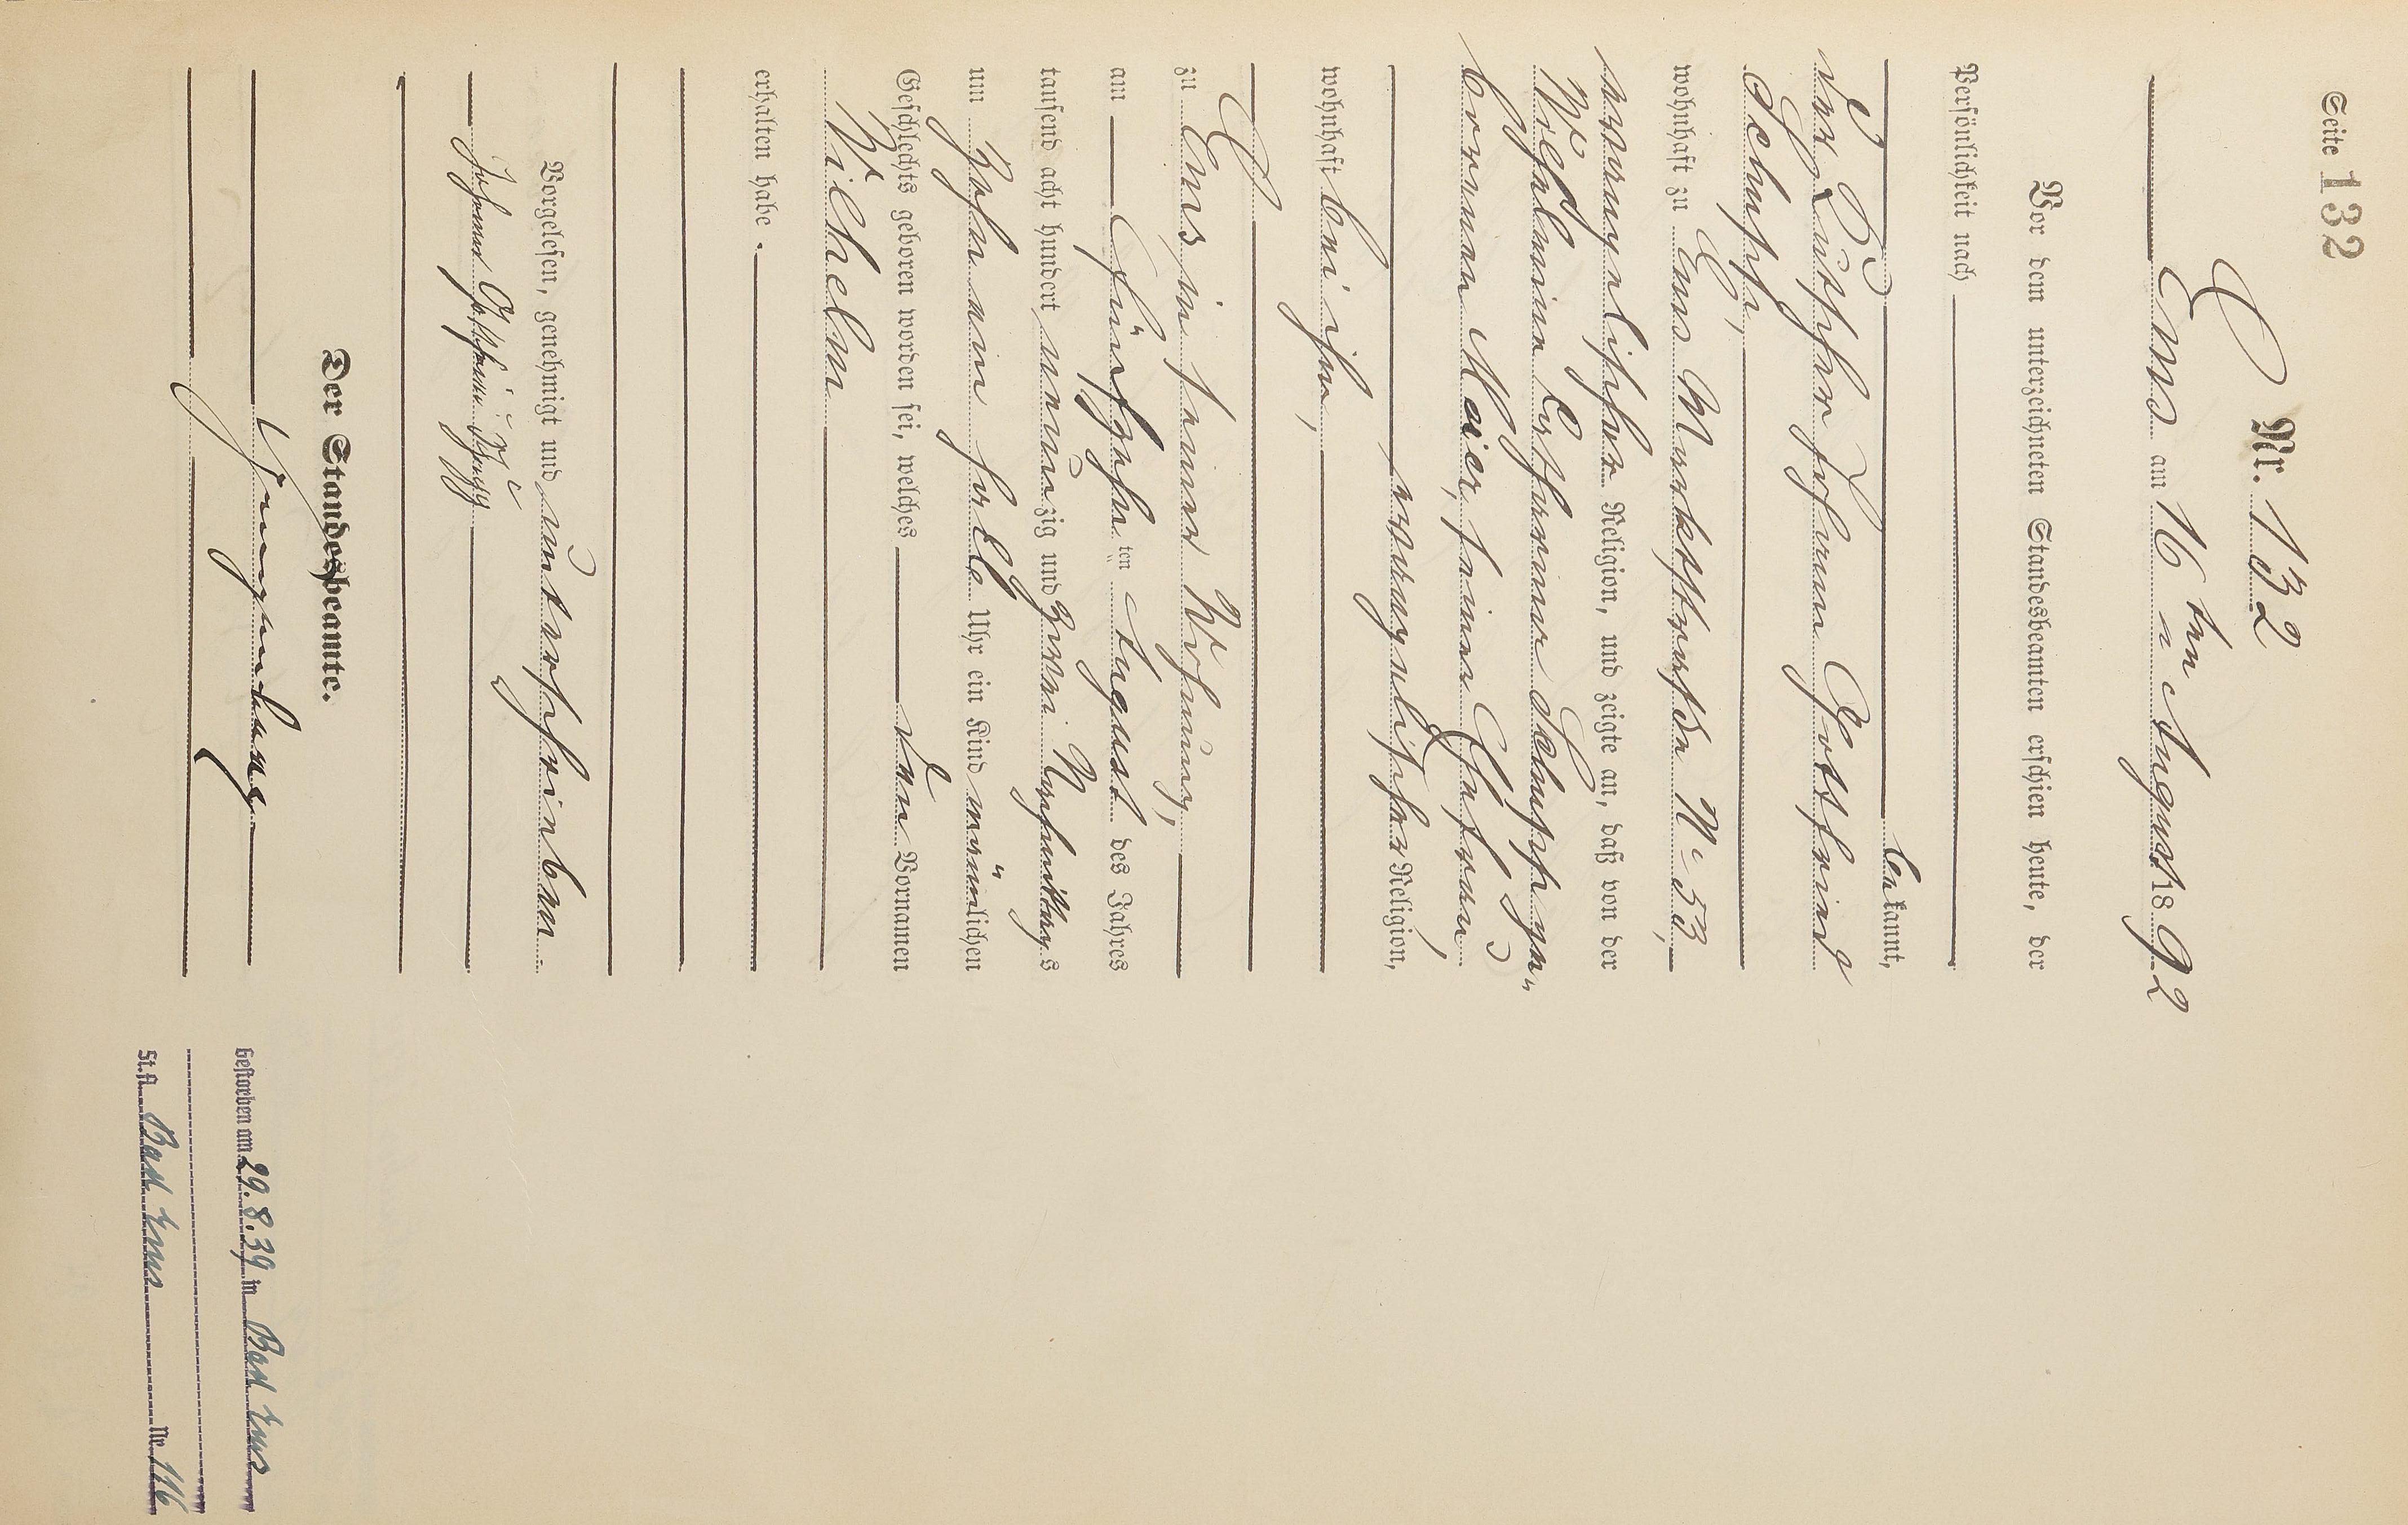 Seite 132
Nr. 132
Ems am 16ten August 1892
Vor dem unterzeichneten Standesbeamten erschien heute, der
Persönlichkeit nach
bekannt,
der Tüncher Johann Gottfried
Schupp,
wohnhaft zu Ems Marktstraße No 53,
evangelischer Religion, und zeigte an, daß von der
Wilhelmine Catharine Schupp ge„
borenen Maier, seiner Ehefrau,
evangelischer Religion,
wohnhaft bei ihm,
zu Ems in seiner Wohnung,
am fünfzehnten August des Jahres
tausend acht hundert neunzig und zwei Nachmittags
um zehn ein halb Uhr ein Kind männlichen
Geschlechts geboren worden sei, welches den Vornamen
Wilhelm
erhalten habe.
Vorgelesen, genehmigt und unterschrieben
Johann Gottfried Schupp
Der Standesbeamte.
Gestorben am 29.8.39 in Bad Ems
St.A. Bad Ems Nr. 116